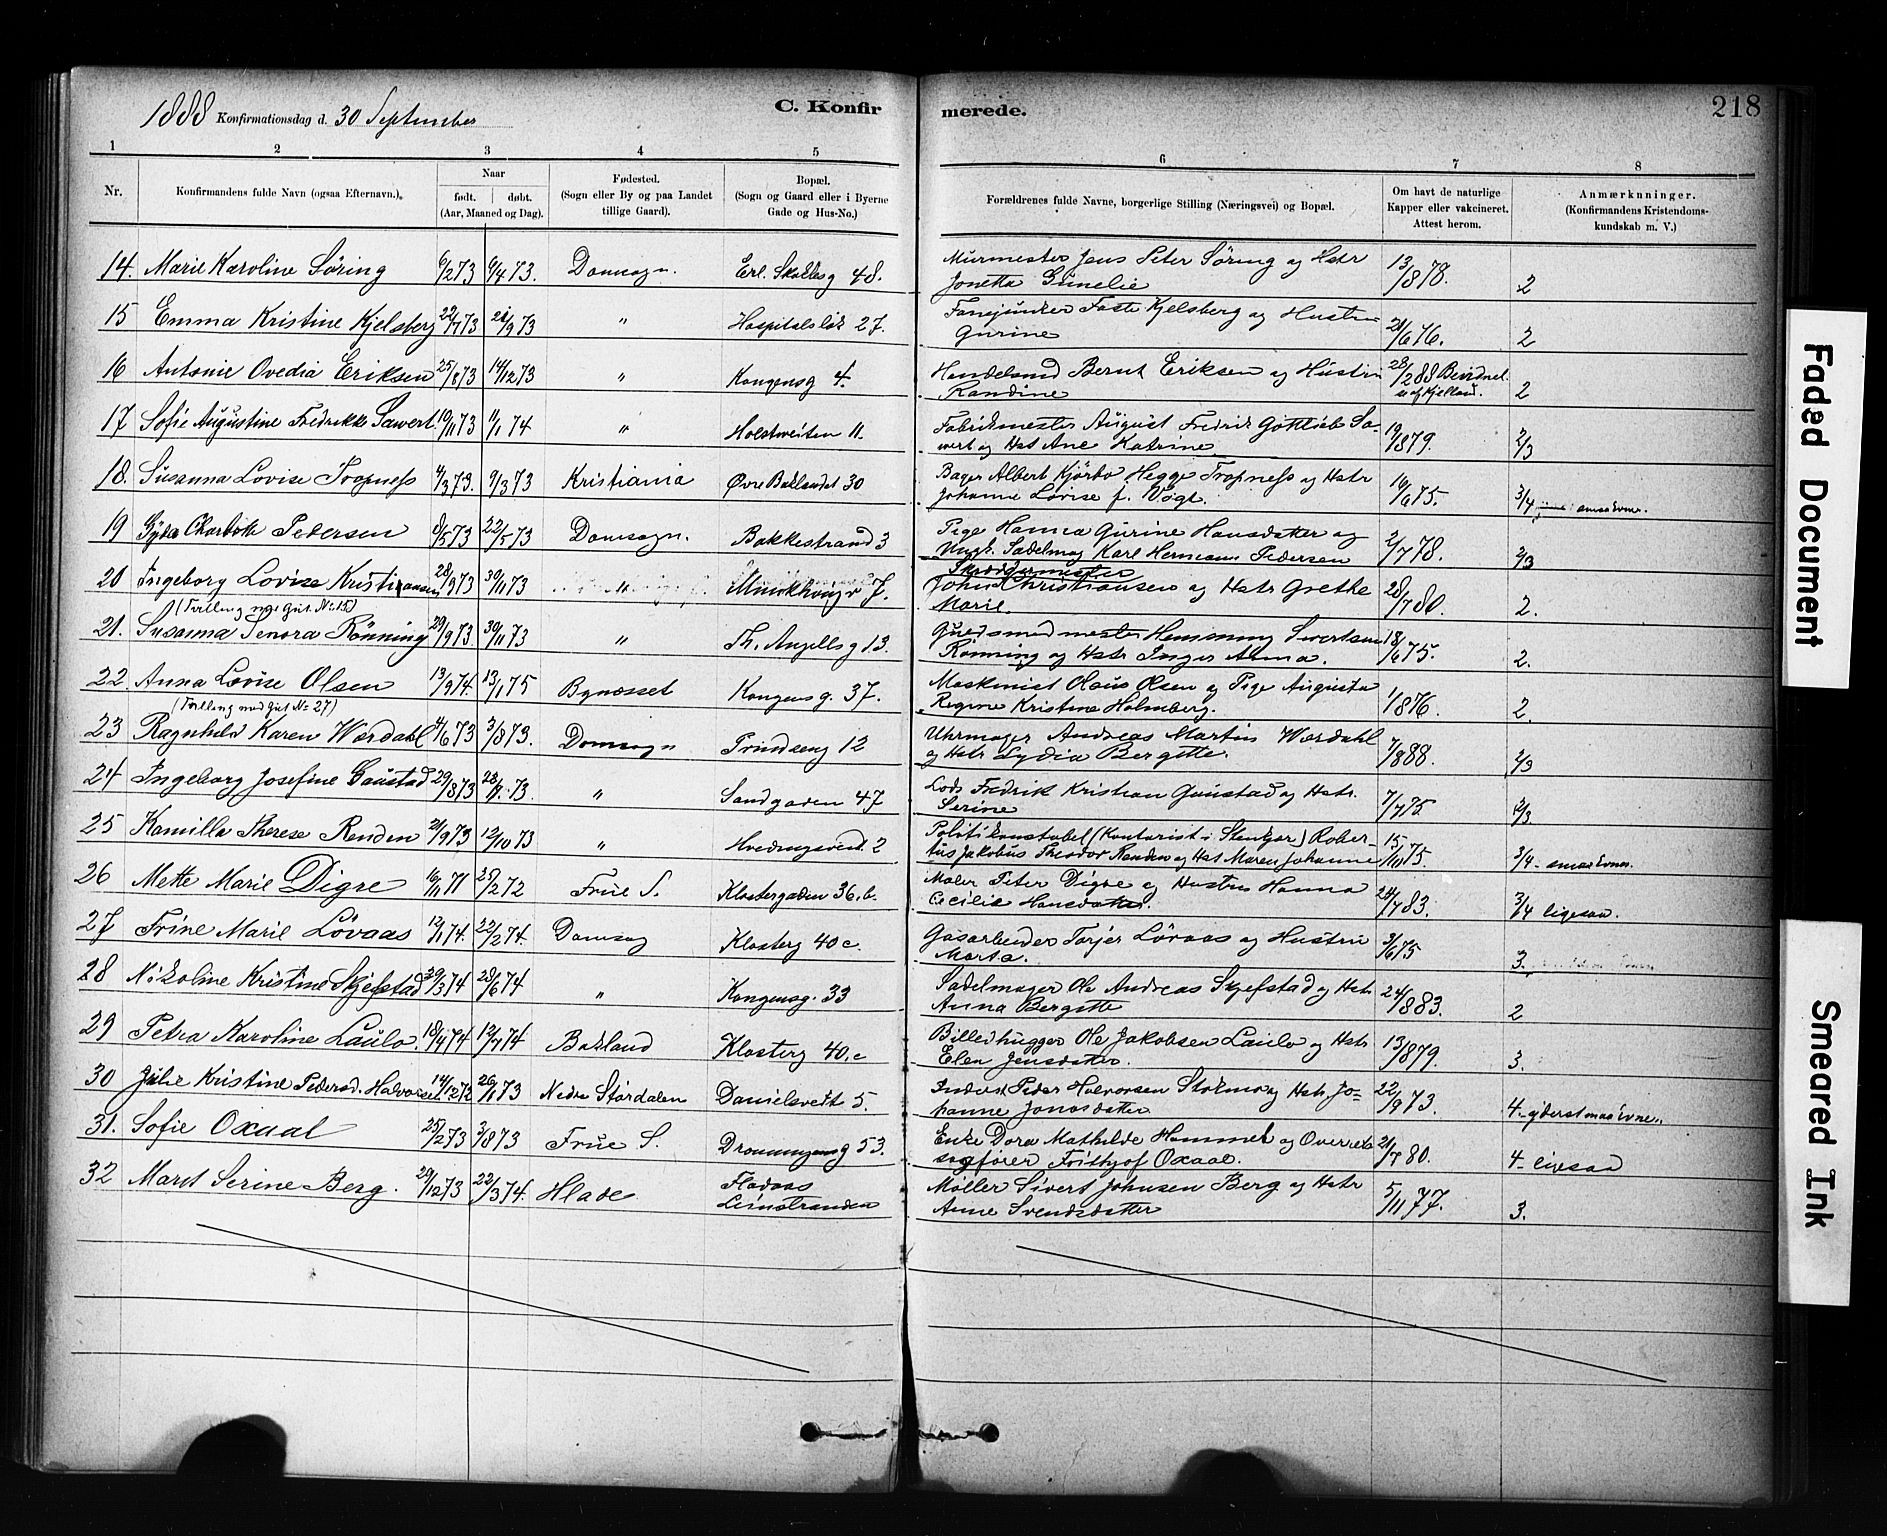 1888 Konfirmationsdag d. 30 September
C. Konfirmerede.
218
1 2 3 4 5 6 7 8
Nr.
Konfirmandens fulde Navn (ogsaa Efternavn.).
Naar
født. døbt.
(Aar, Maaned og Dag).
Fødested.
(Sogn eller By og paa Landet
tillige Gaard).
Bopæl.
(Sogn og Gaard eller i Byerne
Gade og Hus-No.)
Forældrenes fulde Navne, borgerlige Stilling (Næringsvei) og Bopæl.
Om havt de naturlige
Kapper eller vakcineret.
Attest herom.
Anmærknninger.
(Konfirmandens Kristendoms-
kundskab m. V.)
14. Marie Karoline Söring 6/2 73 6/4 73. Domsogn. Erl. Skakkesg 48. Murmester Jens Peter Söring og Hstr 13/8 78. 2
Jonetta Gunelie
15 Emma Kristine Kjelsberg 22/7 73 21/9 73 " Hospitalsløk 27. Fanejunker Faste Kjelsberg og Hustru 21/6 76. 2
Gurine
16 Antonie Ovedia Eriksen 25/8 73 14/12 73 " Kongensg 4. Handelsmd Bernt Eriksen og Hustru 28/2 88 Bevidnet 2
Randine af Kjelland.
17 Sofie Augustine Fredrikke Sawert. 10/11 73 11/1 74 " Holstveiten 11. Fabrikmester August Fredrik Gottlieb Sa- 19/8 79. 2/3
wert og Hst Ane Katrine
18. Susanna Lovise Tropness 4/3 73. 9/3 73 Kristiania Øvre Baklandet 30 Bager Albert Kjörbo Hegge Tropness og Hstr 16/6 75. 3/4 smaa Evner.
Johanne Lovise f. Vogt.
19 Gyda Charlotte Pedersen 8/5 73 22/5 73 Domsogn. Bakkestrand 3 Pige Hanna Gurine Hansdatter og 2/7 78. 2/3
Ungk. Sadelmag Karl Hermann Pedersen
20 Ingeborg Lovise Kristiansen 28/9 73 30/11 73 " Munkhaug v 7. Skræddermester
John Christiansen og Hstr Grethe 28/7 80. 2.
Marie.
(Tvilling med Gut. No 15)
21. Susanna Senora Rönning 29/9 73 30/11 73 " Th. Angellsg 13. Guldsmedmester Henning Sivertsen 18/6 75. 2.
Rönning og Hstr Inger Anna.
22 Anna Lovise Olsen 13/9 74. 13/1 75 Bynæsset Kongensg. 37. Maskinist Olaus Olsen og Pige Augusta 1/8 76. 2.
Regine Kristine Holmberg.
(Tvilling med Gut No 27)
23 Ragnhild Karen Wærdahl 4/6 73 3/8 73. Domsogn Prindseng 12 Uhrmager Andreas Martin Wærdahl 7/8 88. 2/3
og Hstr Lydia Bergitte.
24 Ingeborg Josefine Gaustad 29/8 73 28/9 73. " Sandgaden 47 Lods Fredrik Kristian Gaustad og Hstr. 7/7 75 2/3
Serine
25 Kamilla Therese Renden 21/9 73 12/10 73 " Hvedingsveit. 2 Politikonstabel (Kontorist i Stenkjær) Rober- 15/11 75. 3/4 - smaa Evner.
tus Jakobus Theodor Renden og Hst Maren Johanne
26 Mette Marie Digre 16/11 71 25/2 72 Frue S. Klostergaden 36. b. Maler Peter Digre og Hustru Hanna 24/7 83. 3/4 ligesaa.
Cecilie Hansdatter.
27 Trine Marie Lövaas 12/1 74. 22/2 74. Domsog Klosterg 40 c. Gasarbeider Torjer Lövaas og Hustru 3/6 75 3.
Marta.
28 Nikoline Kristine Skjefstad 29/3 74 28/6 74 " Kongensg. 33 Sadelmager Ole Andreas Skjefstad og Hstr. 24/8 83. 2
Anna Bergitte
29 Petra Karoline Laulo. 18/4 74 12/7 74 Bakland Klosterg 40. c Billedhugger Ole Jakobsen Laulo og Hstr 13/8 79. 3.
Elen Jensdatter.
30 Julie Kristine Pedersd. Halvorsen. 14/12 72 26/1 73 Nedre Stördalen Danielsveit 5. Inderst Peder Halvorsen Stokmo og Hstr. Jo= 22/9 73. 4. - yderst smaa Evne..
hanne Jonasdatter
31. Sofie Oxaal 25/2 73 3/8 73 Frue S. Dronningensg 53. Enke Dora Mathilde Hammel og Overrets 21/7 80. 4 - ligesaa
sagfører Frithjof Oxaal.
32 Marit Serine Berg. 29/12 73 22/3 74. Hlade Flakaas Møller Sivert Johnsen Berg og Hstr 5/11 77. 3.
Leinstranden Anne Svendsdatter
Faded Document
Smeared Ink